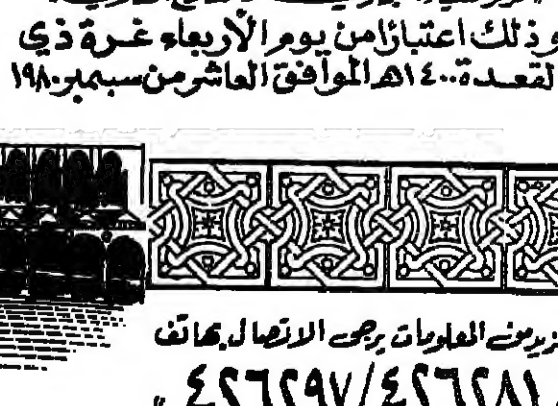 وذلك اعتبارًا من يوم الأربعاء غرة ذي
القعدة ١٤٠٠هـ الموافق العاشر من سبتمبر ١٩٨٠
لمزيد من المعلومات يرجى الاتصال بهاتف
٤٢٦٢٩٧/٤٢٦٢٨١